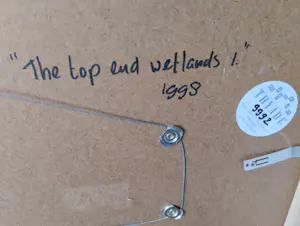 "The top end wetlands 1."
1998
9992